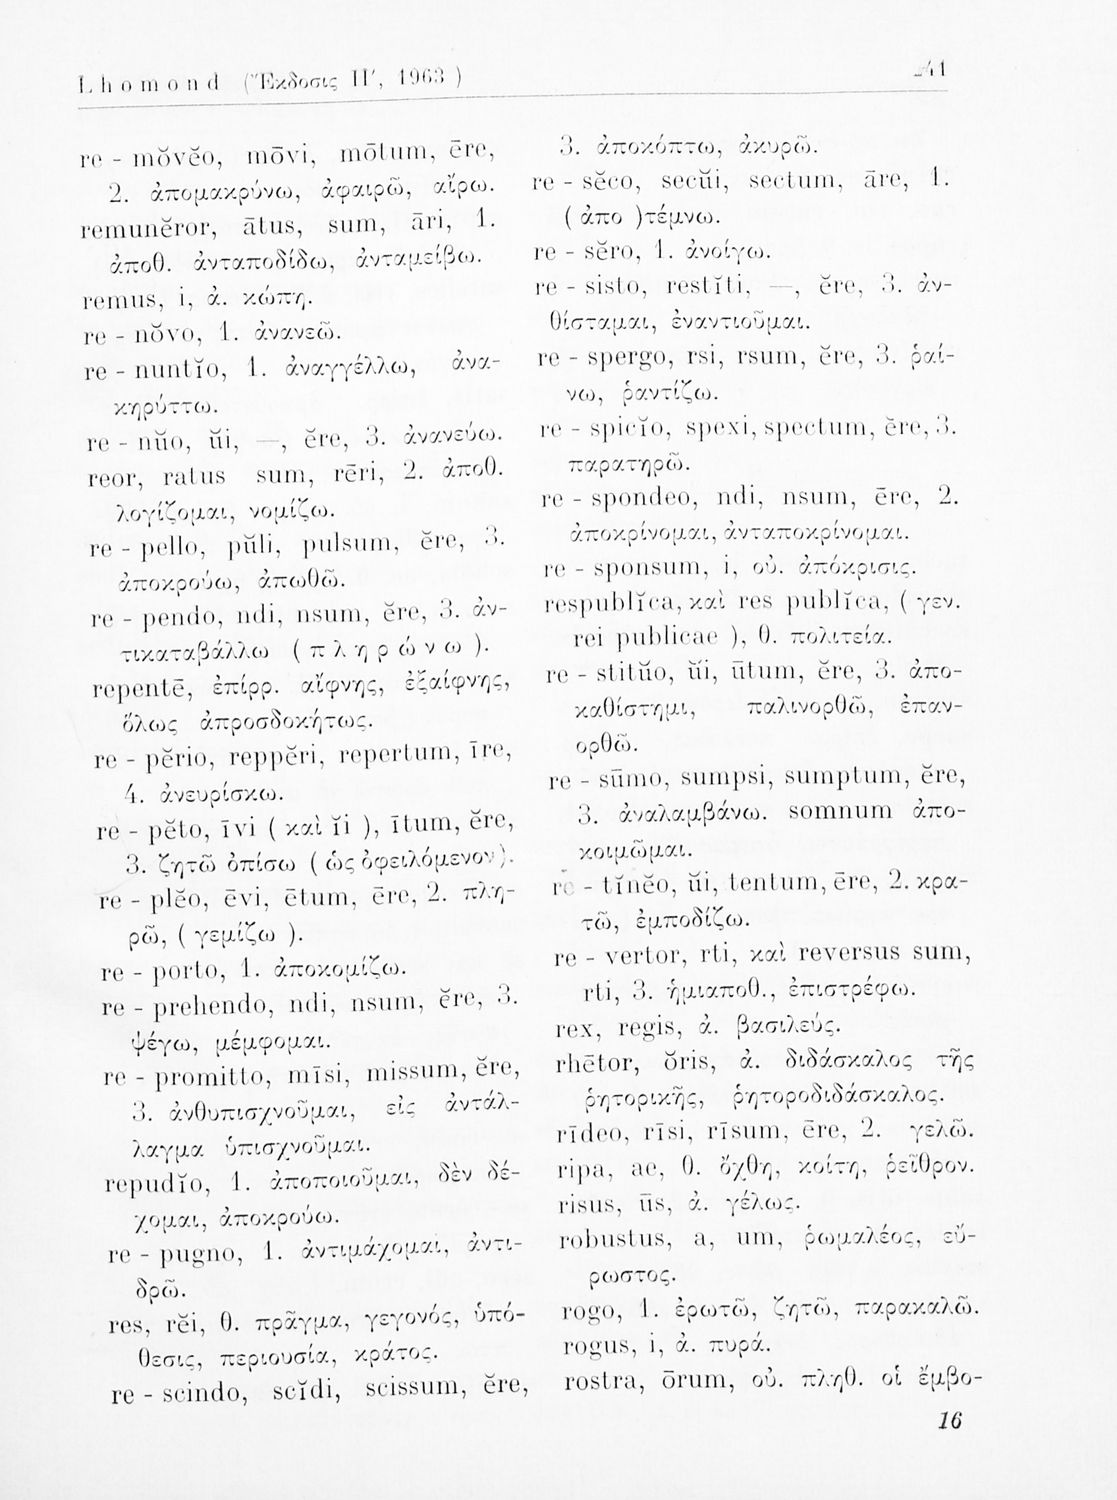 Lhomond (Ἔκδοσις Η', 1963) 241
re - mŏvĕo, mōvi, mōtum, ēre,
2. ἀπομακρύνω, ἀφαιρῶ, αἴρω.
remunĕror, ātus, sum, āri, 1.
ἀποθ. ἀνταποδίδω, ἀνταμείβω.
remus, i, ἀ. κώπη.
re - nŏvo, 1. ἀνανεῶ.
re - nuntĭo, 1. ἀναγγέλλω, ἀνα-
κηρύττω.
re - nŭo, ŭi, —, ĕre, 3. ἀνανεύω.
reor, ratus sum, rēri, 2. ἀποθ.
λογίζομαι, νομίζω.
re - pello, pŭli, pulsum, ĕre, 3.
ἀποκρούω, ἀπωθῶ.
re - pendo, ndi, nsum, ĕre, 3. ἀν-
τικαταβάλλω (πληρώνω).
repentē, ἐπίρρ. αἴφνης, ἐξαίφνης,
ὅλως ἀπροσδοκήτως.
re - pĕrio, reppĕri, repertum, īre,
4. ἀνευρίσκω.
re - pĕto, īvi ( καὶ ĭi ), ītum, ĕre,
3. ζητῶ ὀπίσω ( ὡς ὀφειλόμενον ).
re - plĕo, ēvi, ētum, ēre, 2. πλη-
ρῶ, ( γεμίζω ).
re - porto, 1. ἀποκομίζω.
re - prehendo, ndi, nsum, ĕre, 3.
ψέγω, μέμφομαι.
re - promitto, mīsi, missum, ĕre,
3. ἀνθυπισχνοῦμαι, εἰς ἀντάλ-
λαγμα ὑπισχνοῦμαι.
repudĭo, 1. ἀποποιοῦμαι, δὲν δέ-
χομαι, ἀποκρούω.
re - pugno, 1. ἀντιμάχομαι, ἀντι-
δρῶ.
res, rĕi, θ. πρᾶγμα, γεγονός, ὑπό-
θεσις, περιουσία, κράτος.
re - scindo, scĭdi, scissum, ĕre,
3. ἀποκόπτω, ἀκυρῶ.
re - sĕco, secŭi, sectum, āre, 1.
( ἀπο )τέμνω.
re - sĕro, 1. ἀνοίγω.
re - sisto, restĭti, —, ĕre, 3. ἀν-
θίσταμαι, ἐναντιοῦμαι.
re - spergo, rsi, rsum, ĕre, 3. ῥαί-
νω, ῥαντίζω.
re - spicĭo, spexi, spectum, ĕre, 3.
παρατηρῶ.
re - spondeo, ndi, nsum, ēre, 2.
ἀποκρίνομαι, ἀνταποκρίνομαι.
re - sponsum, i, οὐ. ἀπόκρισις.
respublĭca, καὶ res publĭca, ( γεν.
rei publicae ), θ. πολιτεία.
re - stitŭo, ŭi, ūtum, ĕre, 3. ἀπο-
καθίστημι, παλινορθῶ, ἐπαν-
ορθῶ.
re - sūmo, sumpsi, sumptum, ĕre,
3. ἀναλαμβάνω. somnum ἀπο-
κοιμῶμαι.
re - tĭnĕo, ŭi, tentum, ēre, 2. κρα-
τῶ, ἐμποδίζω.
re - vertor, rti, καὶ reversus sum,
rti, 3. ἡμιαποθ., ἐπιστρέφω.
rex, regis, ἀ. βασιλεύς.
rhētor, ŏris, ἀ. διδάσκαλος τῆς
ῥητορικῆς, ῥητοροδιδάσκαλος.
rīdeo, rīsi, rīsum, ēre, 2. γελῶ.
ripa, ae, θ. ὄχθη, κοίτη, ῥεῖθρον.
risus, ūs, ἀ. γέλως.
robustus, a, um, ῥωμαλέος, εὔ-
ρωστος.
rogo, 1. ἐρωτῶ, ζητῶ, παρακαλῶ.
rogus, i, ἀ. πυρά.
rostra, ōrum, οὐ. πληθ. οἱ ἔμβο-
16